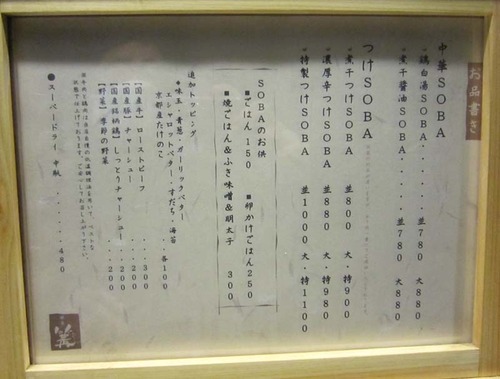 お品書き
中華SOBA
鶏白湯SOBA・・・・・・並780 大880
煮干醤油SOBA・・・・・並780 大880
つけSOBA
煮干つけSOBA 並800 大・特900
濃厚辛つけSOBA 並880 大・特980
特製つけSOBA 並1000 大・特1100
SOBAのお供
■ごはん 150 ■卵かけごはん250
■焼ごはん&ふき味噌&明太子 300
追加トッピング
味玉・青葱・ガーリックバター
エシャロットバター・すだち・海苔
京都産たけのこ ・・各100
【国産牛】ローストビーフ ・・・300
【国産豚】チャーシュー ・・・200
【国産銘柄鶏】しっとりチャーシュー・・200
【野菜】季節の野菜 ・・・200
●スーパードライ 中瓶 ・・・・・・・480